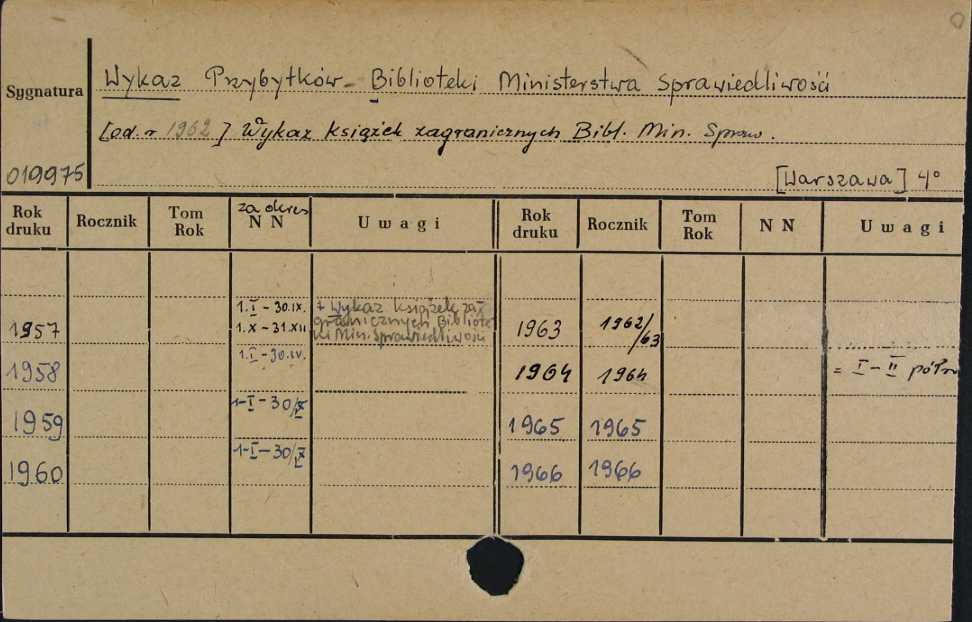 Sygnatura
Wykaz Przybytków Biblioteki Ministerstwa Sprawiedliwości
[od r 1962] Wykaz książek zagranicznych Bibl. Min. Spraw.
019975
[Warszawa] 4°
Rok druku Rocznik Tom Rok za okres N N Uwagi Rok druku Rocznik Tom Rok N N Uwagi
1957 1.I - 30.IX. 1.X - 31.XII Wykaz książek zagranicznych Biblioteki Min. Sprawiedliwości 1963 1962/63
1958 1.I-30. 1964 1964 = I-II
1959 1-I-30/ 1965 1965
1960 1-I-30/ 1966 1966